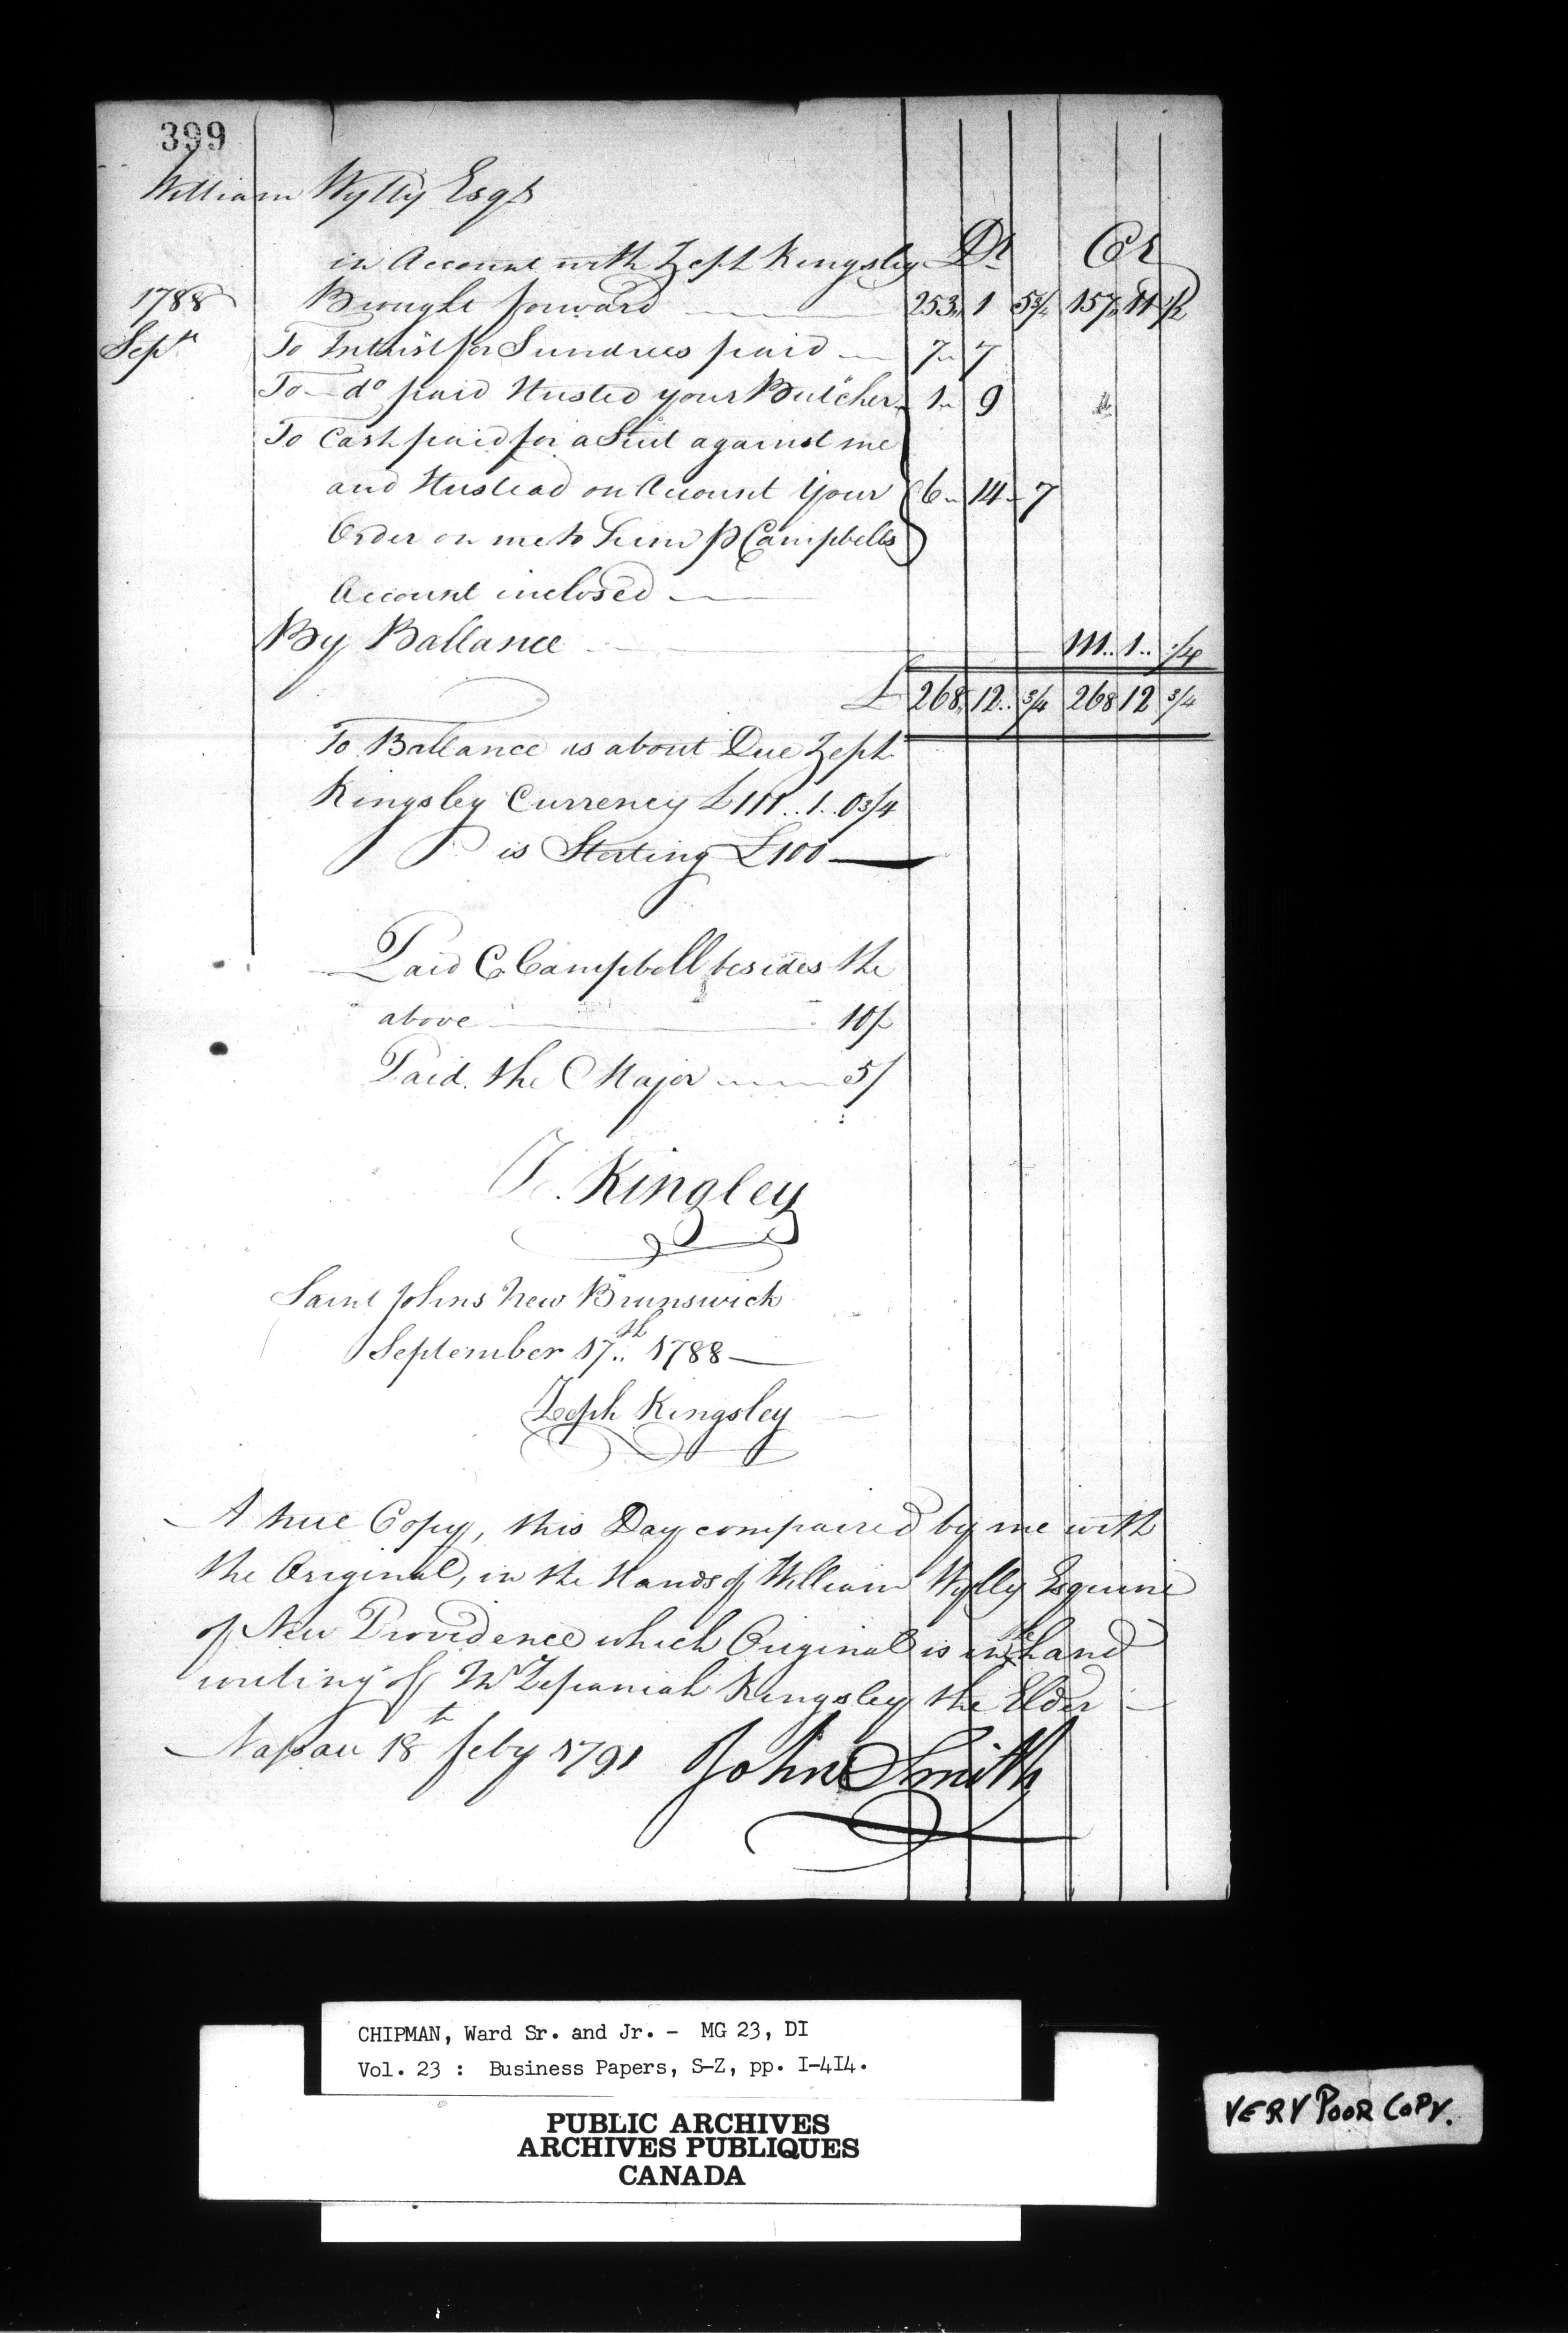 399
William Wylly Esqr
in Account with Zeph Kingsley Dr Cr
1788 Brought forward 253 1 5¾ 157 11 ½
Sepr To Intrist for Sundries paid 7 7
To do paid Husted your Butcher 1 9
To Cash paid for a Suit against me
and Hustead on Account Your 6 14 7
Order on me to him p Campbells
Account inclosed
By Ballance 111..1..¼
£ 268 12.. ¾ 268 12 ¾
To Ballance as about Due Zeph
Kingsley Currency £111..1..0¾
is Sterling £100
Paid C Campbell besides the
above 10/
Paid the Major 5/
Z. Kingley
Saint Johns New Brunswick
September 17th 1788
Zeph Kingsley
A true Copy, this Day compaired by me with
the Original, in the Hands of William Wylly Esquire
of New Providence which Original is in the hand
writing of Mr Zepaniah Kingsley the Elder
Nassau 18th feby 1791 John Smith
CHIPMAN, Ward Sr. and Jr. - MG 23, DI
Vol. 23 : Business Papers, S-Z, pp. I-4I4.
PUBLIC ARCHIVES
ARCHIVES PUBLIQUES
CANADA
VERY POOR COPY.